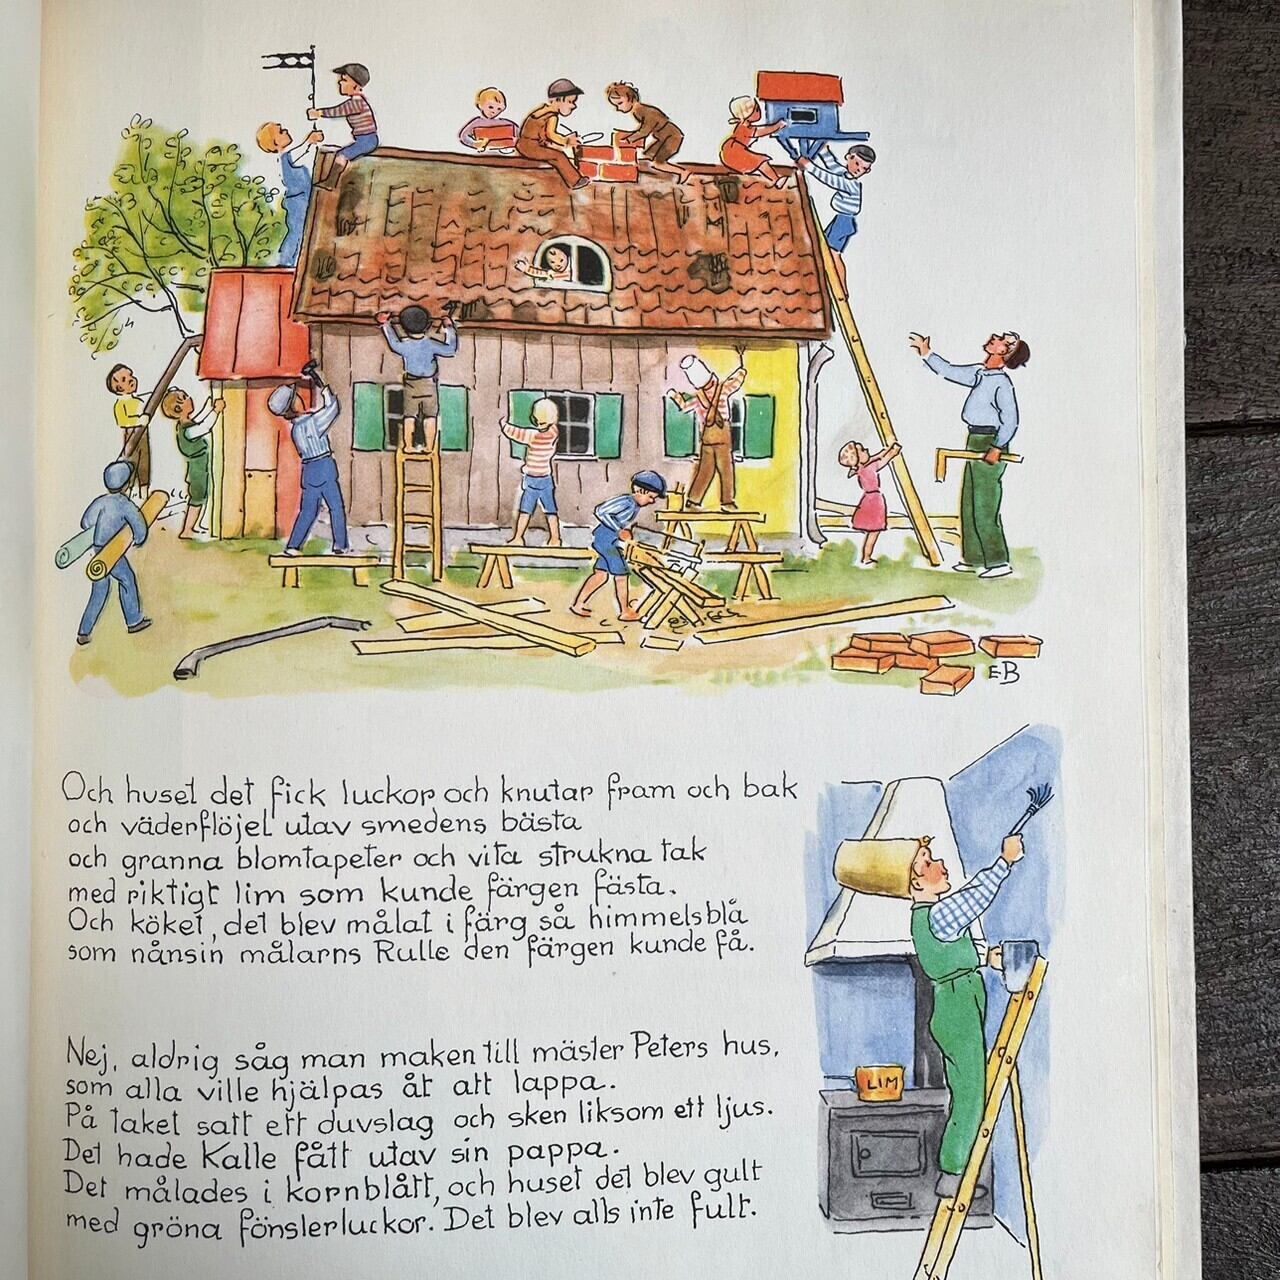 E·B
Och huset det fick luckor och knutar fram och bak
och väderflöjel utav smedens bästa
och granna blomtapeter och vita strukna tak
med riktigt lim som kunde färgen fästa.
Och köket, det blev målat i färg så himmelsblå
som nånsin målarns Rulle den färgen kunde få.
LIM
Nej, aldrig såg man maken till mäster Peters hus,
som alla ville hjälpas åt att lappa.
På taket satt ett duvslag och sken liksom ett ljus.
Det hade Kalle fått utav sin pappa.
Det målades i kornblått, och huset det blev gult
med gröna fönsterluckor. Det blev alls inte fult.